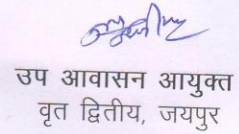 उप आवासन आयुक्त
वृत द्वितीय, जयपुर